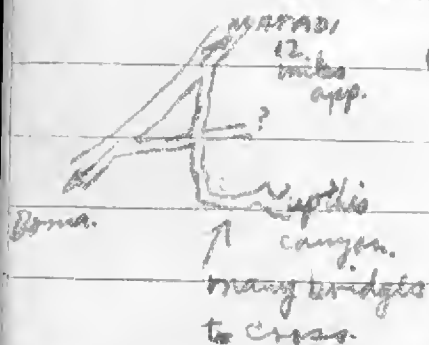 MATADI
12
miles
app.
?
up this
canyon.
Boma.
many bridges
to cross.